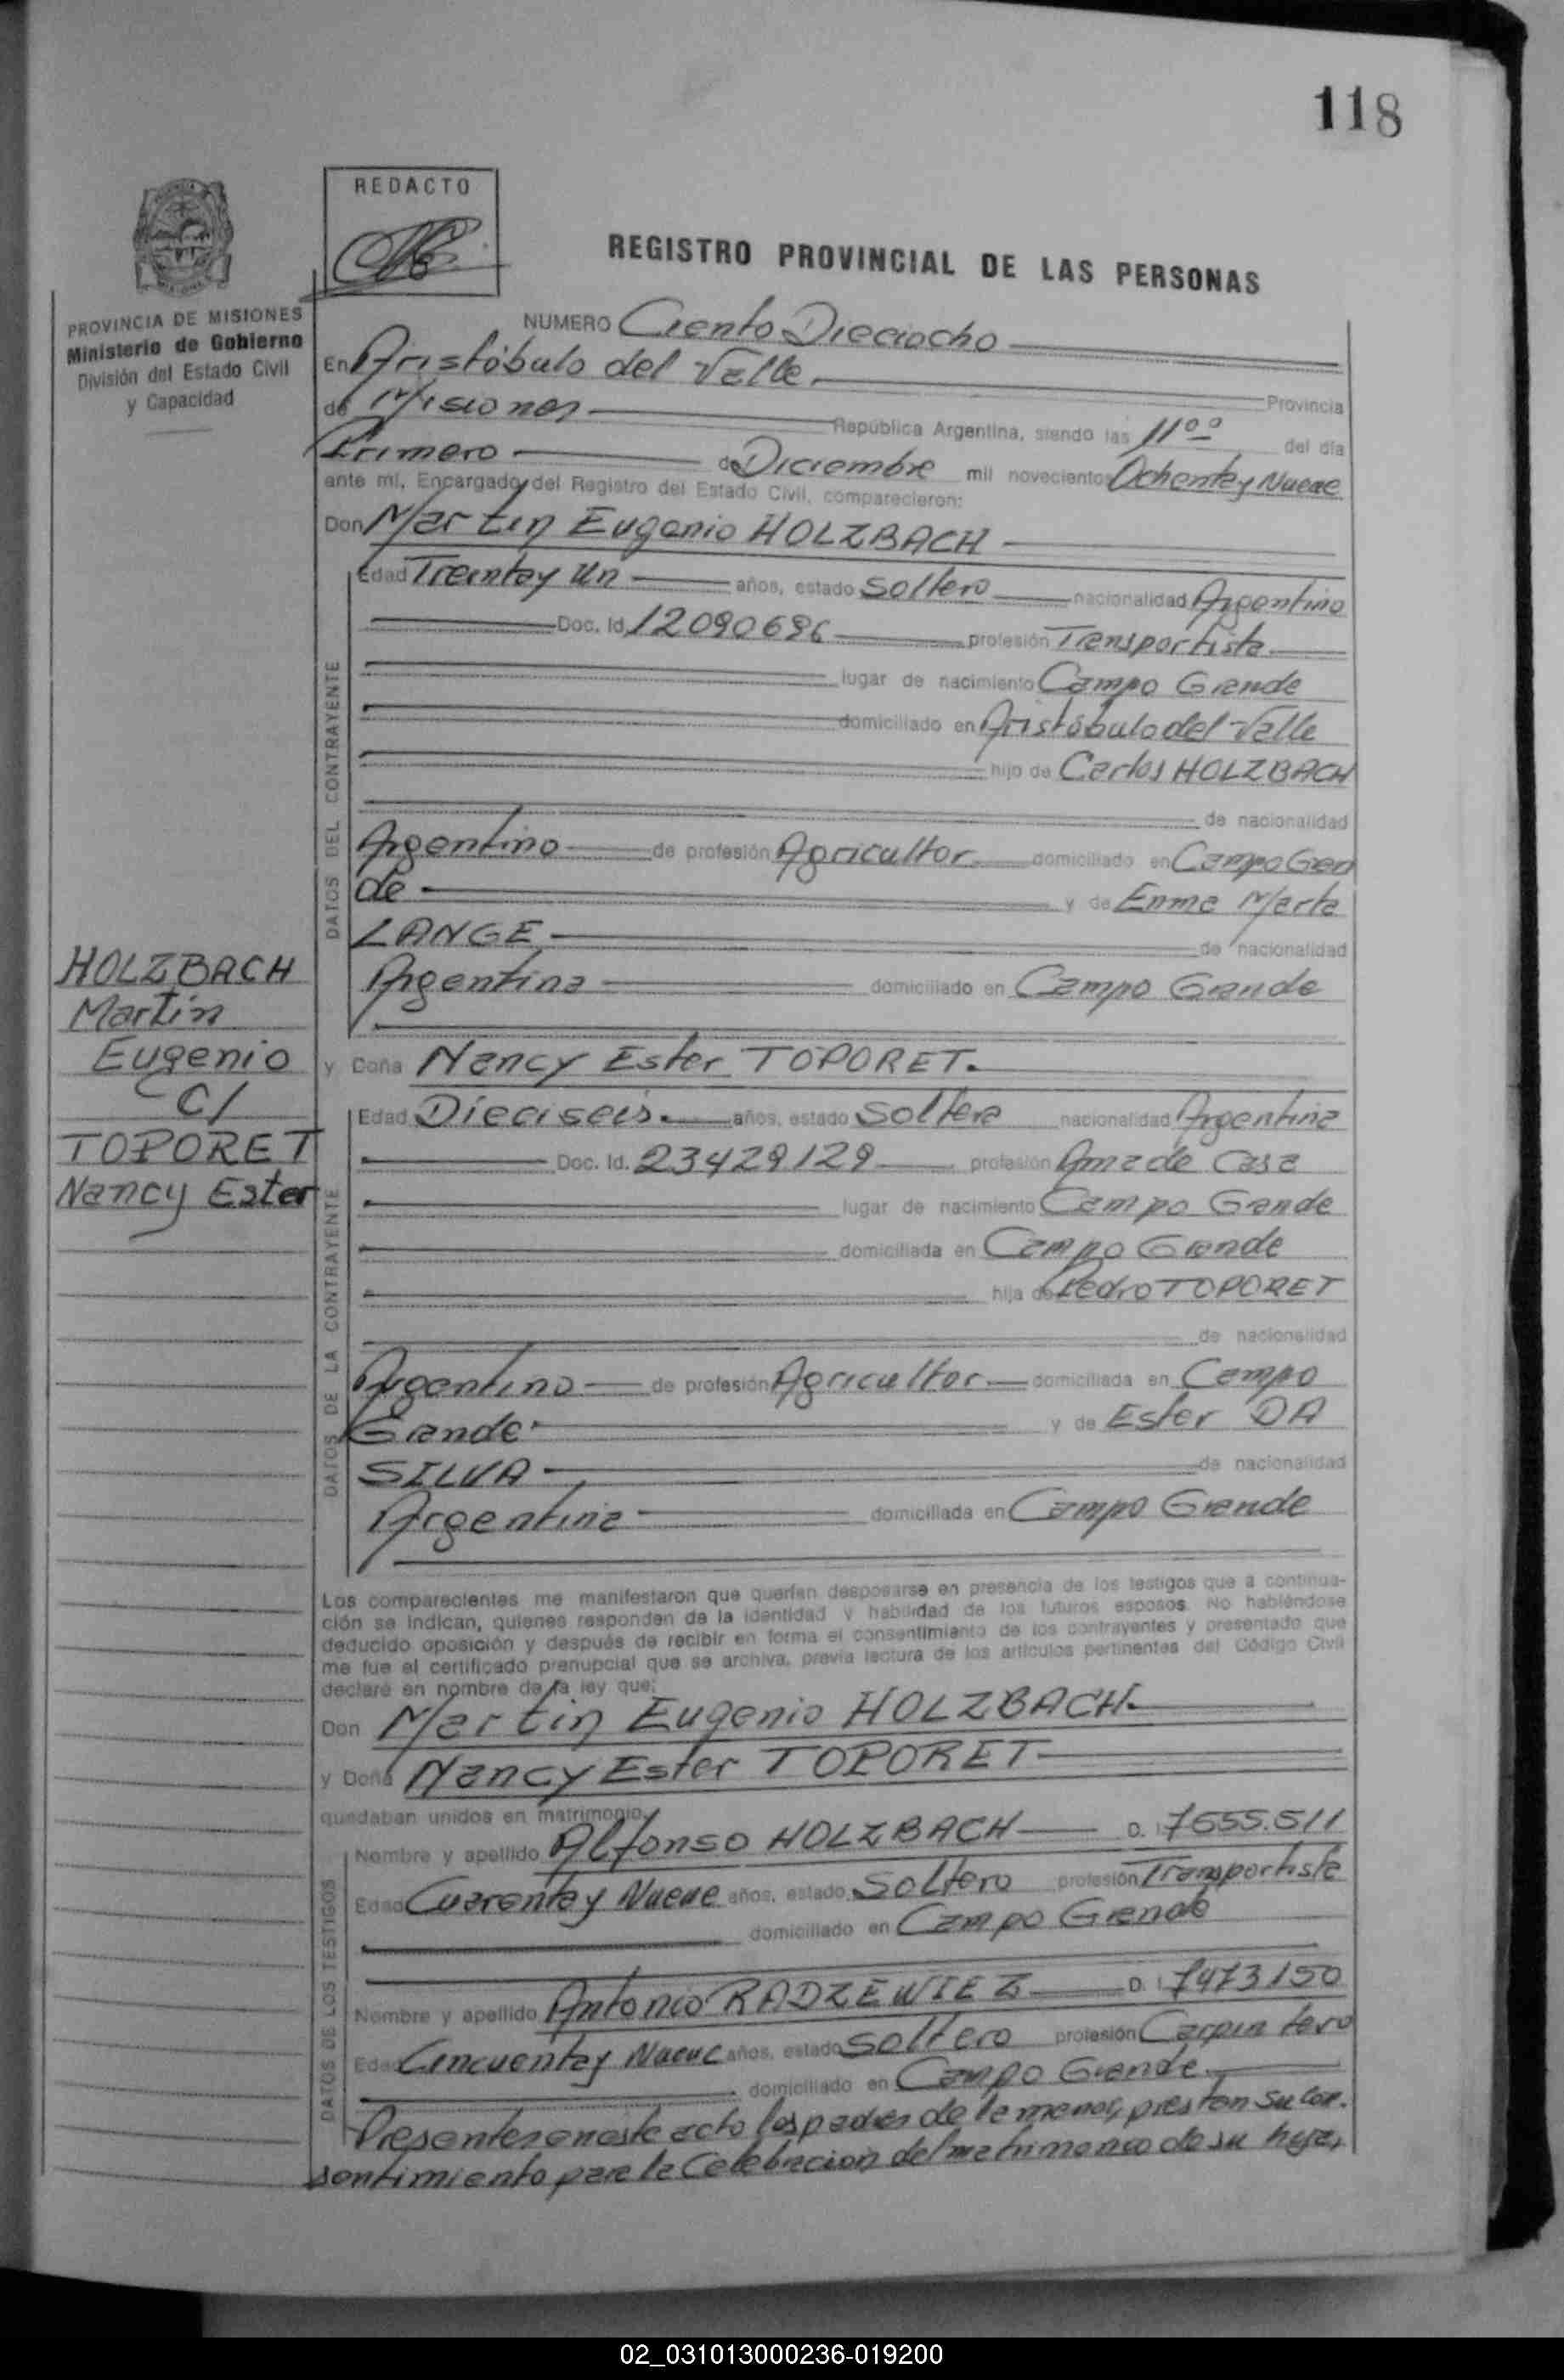 118
REDACTO
REGISTRO PROVINCIAL DE LAS PERSONAS
PROVINCIA DE MISIONES
Ministerio de Gobierno
División del Estado Civil
y Capacidad
NUMERO Ciento Dieciocho
En Aristóbulo del Valle
Provincia
de Misiones República Argentina, siendo las 11 00 del día
Primero de Diciembre mil novecientos Ochenta y Nueve
ante mí, Encargado del Registro del Estado Civil, comparecieron:
Don Martin Eugenio HOLZBACH
DATOS DEL CONTRAYENTE
Edad Treinta y Un años, estado Soltero nacionalidad Argentino
Doc. Id. 12090696 profesión Transportista
lugar de nacimiento Campo Grande
domiciliado en Aristóbulo del Valle
hijo de Carlos HOLZBACH
de nacionalidad
Argentino de profesión Agricultor domiciliado en Campo Gran
de y de Enma Marta
LANGE de nacionalidad
Argentina domiciliado en Campo Grande
HOLZBACH
Martin
Eugenio
C/
TOPORET
Nancy Ester
y Doña Nancy Ester TOPORET.
DATOS DE LA CONTRAYENTE
Edad Dieciseis. años, estado Soltera nacionalidad Argentina
Doc. Id. 23429129 profesión Ama de Casa
lugar de nacimiento Campo Grande
domiciliada en Campo Grande
hija de Pedro TOPORET
de nacionalidad
Argentino de profesión Agricultor domiciliada en Campo
Grande y de Ester DA
SILVA de nacionalidad
Argentina domiciliada en Campo Grande
Los comparecientes me manifestaron que querían desposarse en presencia de los testigos que a continua-
ción se indican, quienes responden de la identidad y habilidad de los futuros esposos. No habiéndose
deducido oposición y después de recibir en forma el consentimiento de los contrayentes y presentado que
me fue el certificado prenupcial que se archiva, previa lectura de los artículos pertinentes del Código Civil
declaré en nombre de la ley que:
Don Martin Eugenio HOLZBACH
y Doña Nancy Ester TOPORET
quedaban unidos en matrimonio.
DATOS DE LOS TESTIGOS
Nombre y apellido Alfonso HOLZBACH D. I 7655.511
Edad Cuarenta y Nueve años, estado Soltero profesión Transportista
domiciliado en Campo Grande
Nombre y apellido Antonio RADZEWIEZ D. I 7473150
Edad Cincuenta y Nueve años, estado Soltero profesión Carpintero
domiciliado en Campo Grande
Presentes en este acto los padres de la menor, prestan su con-
sentimiento para la Celebracion del matrimonio de su hija,
02_031013000236-019200